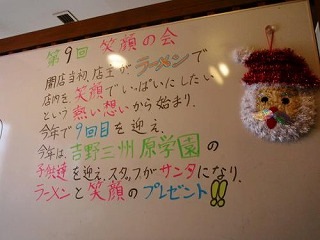 第9回 笑顔の会
開店当初、店主がラーメンで
店内を笑顔でいっぱいにしたい
という熱い想いから始まり、
今年で9回目を迎え、
今年は、吉野三州原学園の
子供達を迎え、スタッフがサンタになり、
ラーメンと笑顔のプレゼント!!